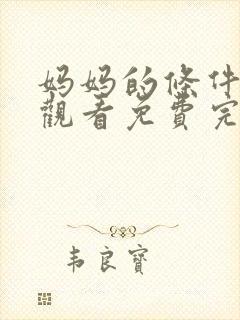 妈妈的條件
觀看免費完
韦良寶